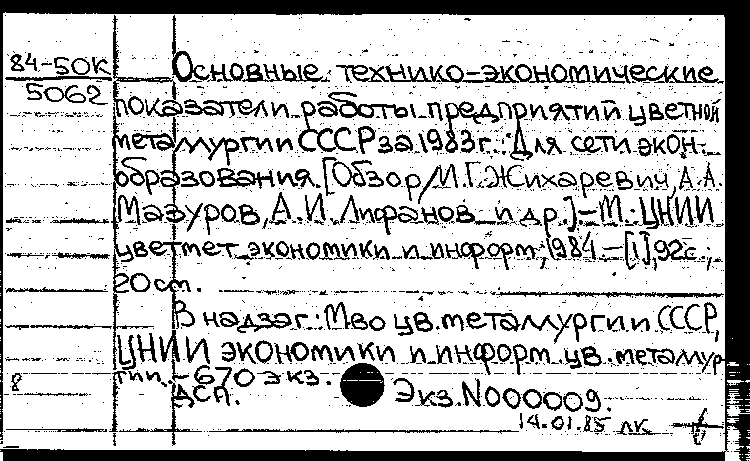 84-50К
5062
Основные технико-экономические
показатели работы предприятий цветной
металлургии СССР за 1983г.: Для сети экон.
образования. [Обзор/М.Г.Жихаревич, А.А.
Мазуров, А.И. Лифанов и др.]-М.: ЦНИИ
цветмет экономики и информ, 1984.-[1], 92с.;
20см.
В надзаг.: М-во цв. металлургии СССР,
ЦНИИ экономики и информ. цв. металлур
гии.-670 экз.
8
ДСП.
Экз.N000009.
14.01.85 лк